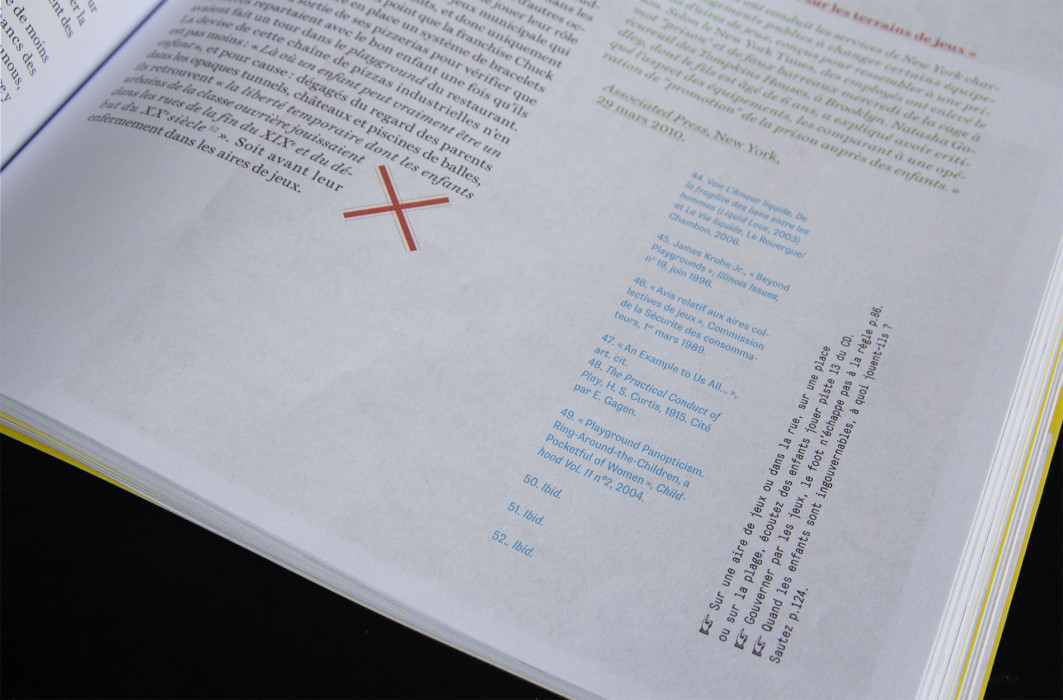 de moins
rancs des
nous,
jeux municipale qui
jouer leur rôle
et donc uniquement
point que la franchise Chuck
en place un système de bracelets
sortie de ses pizzerias pour vérifier que
reparaient avec le bon enfant une fois qu'ils
fait un tour dans le playground du restaurant.
La devise de cette chaîne de pizzas industrielles n'en
est pas moins : « Là où un enfant peut vraiment être un
enfant », et pour cause : dégagés du regard des parents
dans les opaques tunnels, châteaux et piscines de balles,
ils retrouvent « la liberté temporaire dont les enfants
urbains de la classe ouvrière jouissaient
dans les rues de la fin du XIXe et du dé-
but du XXe siècle 52 ». Soit avant leur
enfermement dans les aires de jeux.
sur les terrains de jeux »
ont conduit les services de New York char-
à changer certains équipe-
jeux, conçus pour ressembler à une pri-
Selon le New York Times, des employés ont enlevé le
mot "prison", fixé sur les faux barreaux mercredi de la cage à
Houses, à Brooklyn. Natasha Go-
dley, dont le fils est âgé de 6 ans, a expliqué avoir criti-
qué l'aspect des équipements, les comparant à une opé-
ration de "promotion de la prison auprès des enfants. »
Associated Press, New York,
29 mars 2010.
44. Voir L'Amour liquide, De
la fragilité des liens entre les
hommes (Liquid Love, 2003)
et La Vie liquide, Le Rouergue/
Chambon, 2006.
45. James Krohe Jr., « Beyond
Playgrounds », Illinois Issues,
n° 19, juin 1996.
46. « Avis relatif aux aires col-
lectives de jeux », Commission
de la Sécurité des consomma-
teurs, 1er mars 1989.
47. « An Example to Us All... »,
art. cit.
48. The Practical Conduct of
Play, H. S. Curtis, 1915. Cité
par E. Gagen.
49. « Playground Panopticism.
Ring-Around-the-Children, a
Pocketful of Women », Child-
hood Vol. 11 n°2, 2004.
50. Ibid.
51. Ibid.
52.. Ibid.
Sur une aire de jeux ou dans la rue, sur une place
ou sur la plage, écoutez des enfants jouer piste 13 du CD.
Gouverner par les jeux, le foot n'échappe pas à la règle p.86.
Quand les enfants sont ingouvernables, à quoi jouent-ils ?
Sautez p.124.